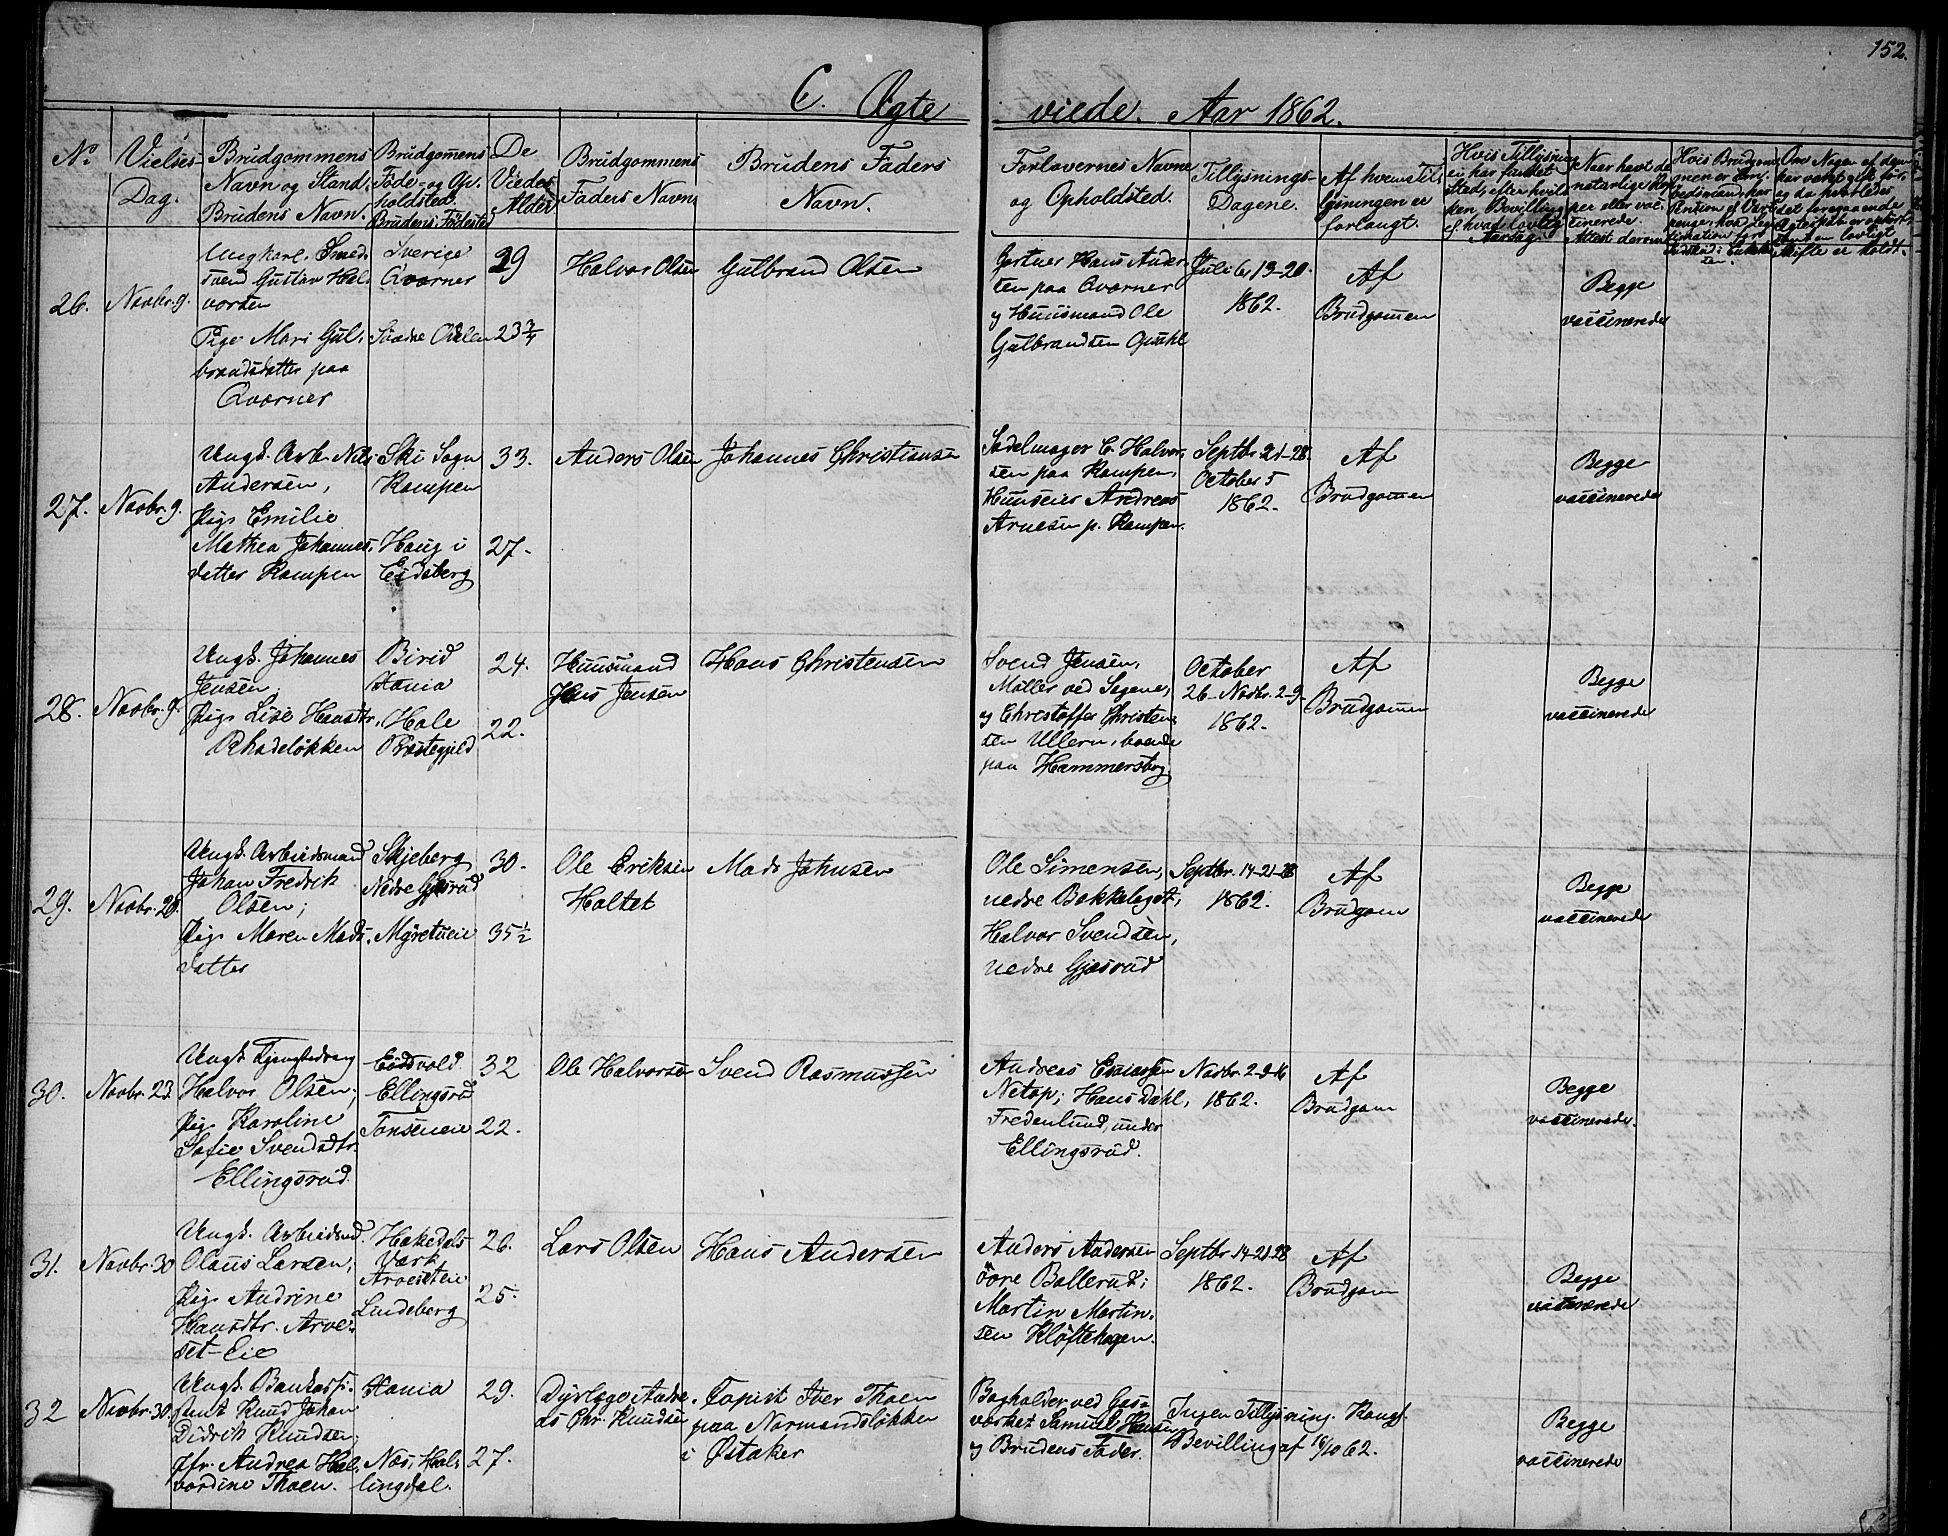 152.
C. Ægte viede. Aar 1862.
No.
Vielses-
Dag.
Brudgommens
Navn og Stand.
Brudens Navn.
Brudgomens
Føde- og Op-
holdsted.
Brudens Fødested
De
Viedes
Alder
Brudgommens
Faders Navn
Brudens Faders
Navn.
Forlovernes Navne
og Opholdsted.
Tillysnings-
Dagene.
Af hvem Til-
lysningen er
forlangt.
26.
Novbr. 9.
Ungkarl. Smed-
svend Gustav Hal-
vorsen
Pige Mari Gul-
brandsdatter paa
Qværner
Sverige
Qværner
Søndre
29
23 3/4
Halvor Olsen
Gulbrand Olsen
Gartner Hans Ander-
sen paa Qværner
og Huusmand Ole
Gulbrandsen Opsahl
Juli 6, 13-20.
1862.
Af
Brudgomen
Begge
vaccinerede
27.
Novbr. 9.
Ungk. Arb. Nils
Andersen,
Pige Emilie
Mathea Johannes-
datter Kampen
Ski Sogn
Kampen
Haug i
Eidsberg
33.
27.
Anders Olsen
Johannes Christiansen
Sadelmager C. Halvor-
sen paa Kampen,
Huuseier Andreas
Arnesen p. Kampen.
Septbr. 21-28.
October 5
1862.
Af
Brudgomen
Begge
vaccinerede
28.
Novbr. 9.
Ungk. Johannes
Jensen;
Pige Lise Hansdtr.
Rhodeløkken
Birid
Xania
Hole
Præstegjeld
24.
22.
Huusmand
Jens Jensen
Hans Christensen
Svend Jensen,
Møller ved Sagene,
og Christoffer Christen-
sen Ullern, boende
paa Hammersborg
October
26- Novbr. 2-9-
1862.
Af
Brudgomen
Begge
vaccinerede
29.
Novbr. 28.
Ungk. Arbeidsmand
Johan Fredrik
Olsen;
Pige Maren Mads-
datter
Skjeberg
Nedre Gjersrud
Myretueie
30.
35 1/2
Ole Eriksen
Holtet
Mads Johnsen
Ole Simensen,
nedre Bekkelaget;
Halvor Svendsen,
nedre Gjesrud
Septbr. 14-21-28
1862.
Af
Brudgom
Begge
vaccinerede
30.
Novbr. 23.
Ungk. Gjenghedreng
Halvor Olsen;
Pige Karoline
Sofie Svendsdtr.
Ellingsrud.
Eidsvold
Ellingsrud
Tonseneie
32
22.
Ole Halvorsen
Svend Rasmussen
Andreas
Netop; Hans Dahl,
Fredenlund, under
Ellingsrud.
Novbr. 2-9-16
1862.
Af
Brudgom
Begge
vaccinerede.
31.
Novbr. 30
Ungk. Arbeidsmd.
Olaus Larsen;
Pige Andrine
Hansdtr. Arve-
set-Eie
Hakedals
Værk
Arveseteie
Lindeberg
26.
25.
Lars Olsen
Hans Andersen
Anders Andersen
øvre Ballerud;
Martin Martin-
sen Kløftehagen.
Septbr. 14-21-28
1862.
Af
Brudgom
Begge
vaccinerede
32
Novbr. 30.
Ungk. Bankassi-
stent Knud Johan
Didrik Knudsen;
Jfr. Andrea Hal-
vordine Thoen.
Xania
Næs, Hal-
lingdal.
29.
27.
Dyrlæge Andre-
as Chr. Knudsen
Copist Iver Thoen
paa Normandsløkken
i Østaker
Bogholder ved Gas-
værket Samuel Hansen
og Brudens Fader.
Ingen Tillysning. Kongl.
Bevilling af 16/10 62.
Begge
vaccinerede